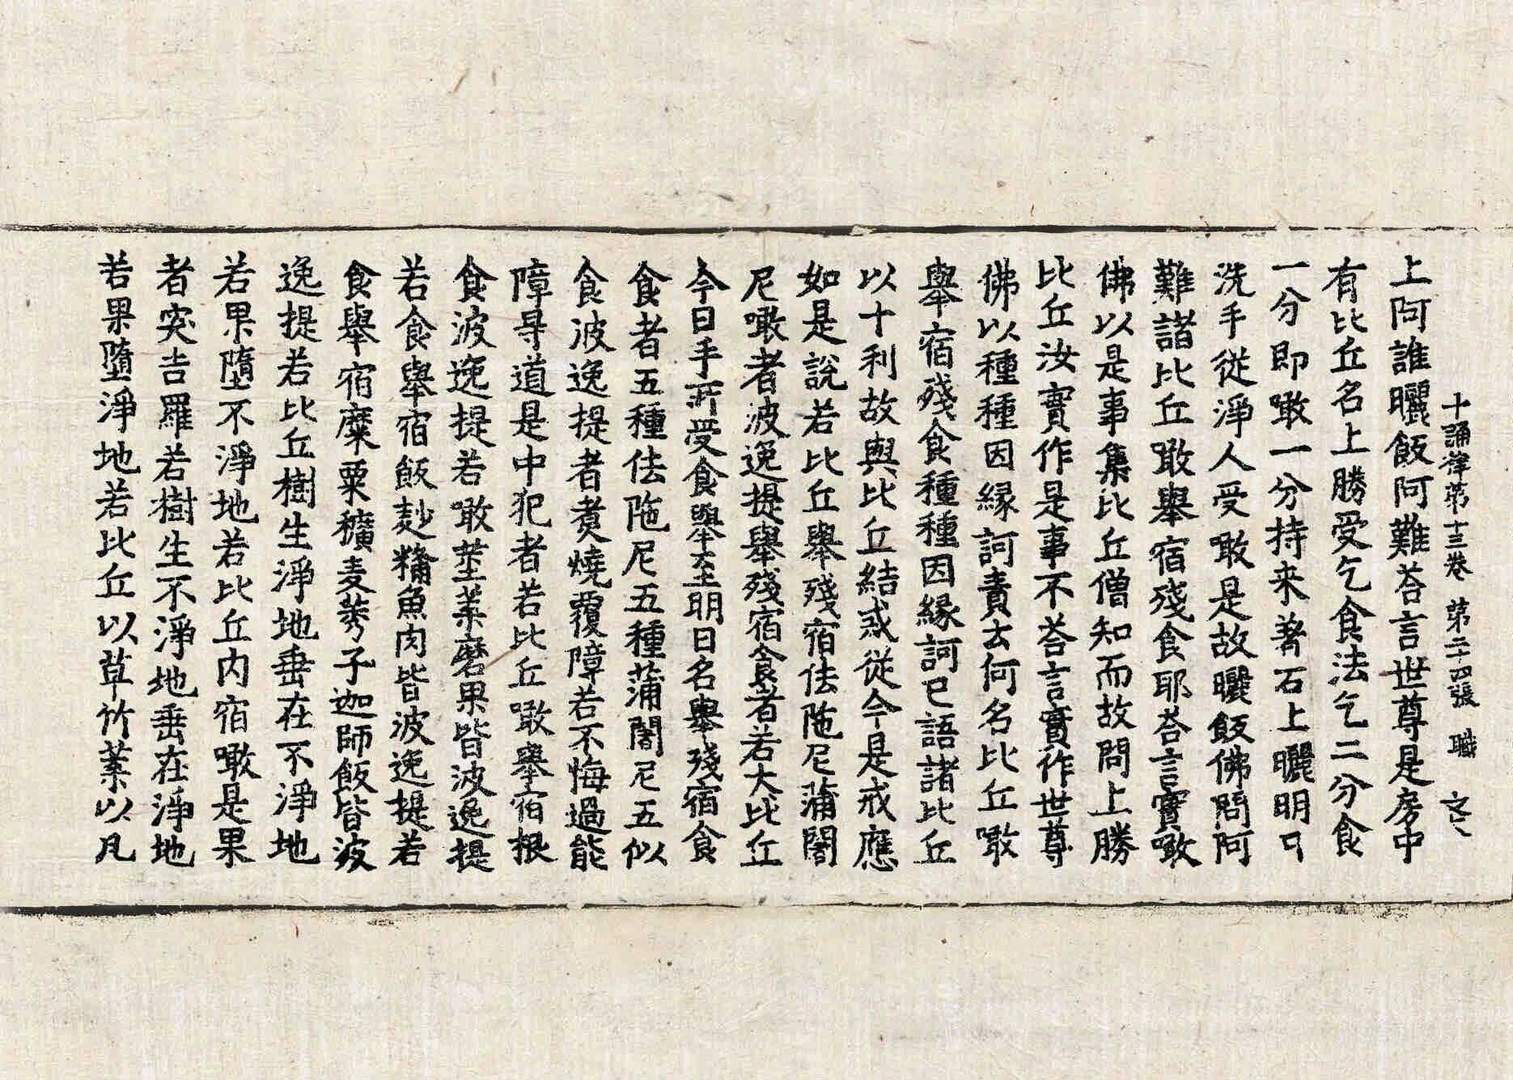 十誦律第十三卷 第二十四張 職
上阿誰曬飯阿難荅言世尊是房中
有比丘名上勝受乞食法乞二分食
一分即噉一分持来著石上曬明日
洗手從淨人受噉是故曬飯佛問阿
難諸比丘噉舉宿殘食耶荅言實噉
佛以是事集比丘僧知而故問上勝
比丘汝實作是事不荅言實作世尊
佛以種種因緣訶責云何名比丘噉
舉宿殘食種種因緣訶已語諸比丘
以十利故與比丘結戒從今是戒應
如是說若比丘舉殘宿佉陁尼蒲闍
尼噉者波逸提舉殘宿食者若大比丘
今日手所受食舉至明日名舉殘宿食
食者五種佉陁尼五種蒲闍尼五似
食波逸提者煑燒覆障若不悔過能
障㝵道是中犯者若比丘噉舉宿根
食波逸提若噉莖葉磨果皆波逸提
若食舉宿飯麨糒魚肉皆波逸提若
食舉宿糜粟穬麦莠子迦師飯皆波
逸提若比丘樹生淨地垂在不淨地
若果墮不淨地若比丘内宿噉是果
者突吉羅若樹生不淨地垂在淨地
若果墮淨地若比丘以草竹葉以凡